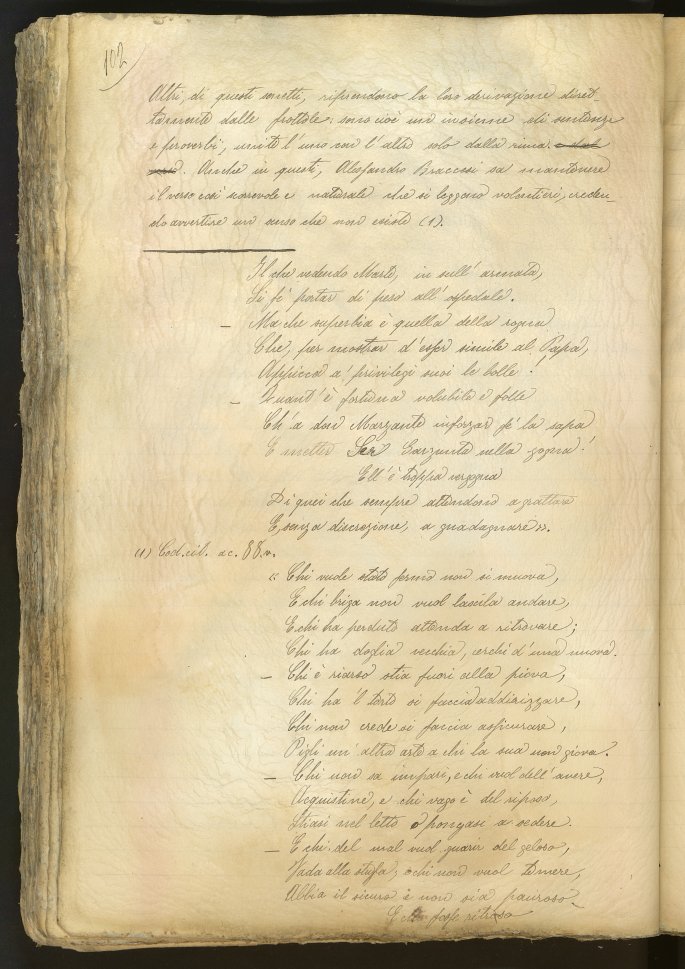 102
Altri, di questi sonetti, riprendono la loro derivazione diret-
tamente dalle frottole: sono cioè un insieme di sentenze
e proverbi, uniti l'uno con l'altro solo dalla rima.
Anche in questi, Alessandro Braccesi sa mantenere
il verso così scorrevole e naturale che si leggono volontieri, creden-
do avvertire un senso che non esiste (1).
Il che vedendo Marte, in sull'armata,
Si fé portar di peso all'ospedale.
— Ma che superbia è quella della rogna
Che, per mostrar d'esser simile al Papa,
Appicca a' privilegi suoi le bolle!
— Quant'è fortuna volubile e folle
Ch'a don Marzante inforzar fé la sapa
E metter Ser Garzante nella gogna!
Ell'è troppa vergogna
Di quei che sempre attendono a grattare
E, senza discrezione, a guadagnare».
(1) Cod. cit. ac. 88.v.
"Chi vuole stato fermo non si muova,
E chi briga non vuol lascila andare,
E chi ha perduto attenda a ritrovare;
Chi ha doglia vecchia, cerchi d'una nuova.
— Chi è riarso stia fuori alla piova,
Chi ha 'l torto si faccia addirizzare,
Chi non crede si faccia assicurare,
Pigli un'altra arte a chi la sua non giova.
— Chi non sa impari, e chi vuol dell'avere,
Acquistine, e chi vago è del riposo,
Stiasi nel letto o pongasi a sedere.
— E chi del mal vuol guarir del geloso,
Vada alla stufa; e chi non vuol temere,
Abbia il sicuro e non sia pauroso
E fosse ritroso